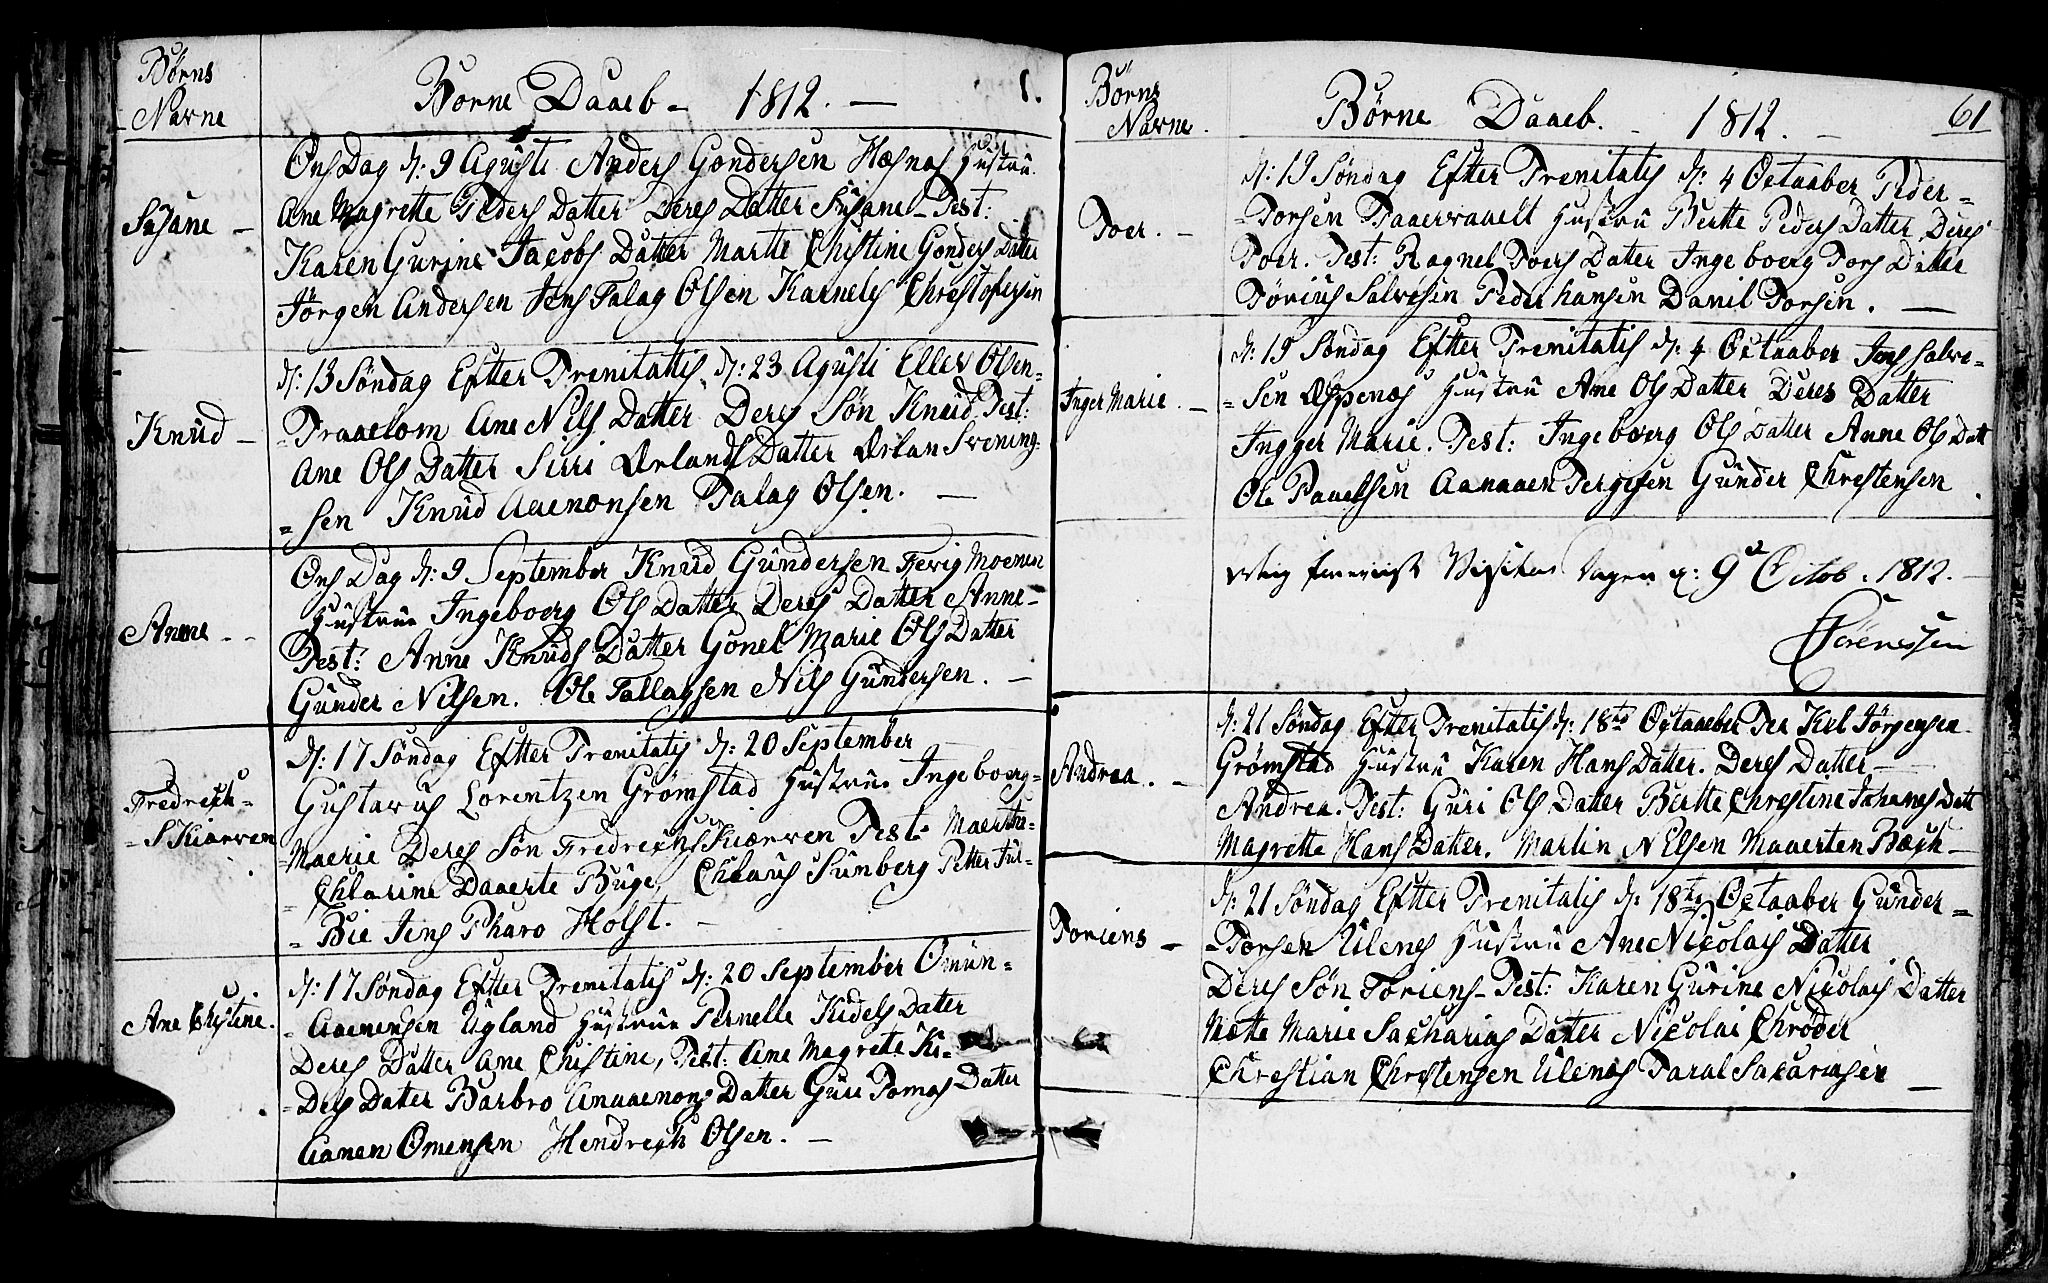 Børns
Navne
Børne Daaeb - 1812. — 1.
Susane -
Ons Dag d: 9 Agusti Anders Gondersen Hæsnæs Hustru
Ane Magrette Peders Datter Deres Datter Susane - Test:
Karen Gurine Jacobs Datter Marte Christine Gonders Datter
Jørgen Andersen Jens Talag Olsen Karnels Christofersen
Knud -
d: 13 Søndag Eftter Trenitattis d: 23 Agusti Ellev Olsen-
- Traaelom Ane Nils Datter Deres Søn Knud Test:
Ane Ols Datter Sirri Ørlands Datter Ørlan Svening-
= sen Knud Aaenonsen Talag Olsen. —
Anne - -
Ons Dag d: 9 September Knud Gundersen Fevig Moenen
Hustrue Ingeboerg Ols Datter Deres Datter Anne -
Test: Anne Knuds Datter Gonel Marie Ols Datter
Gunder Nilsen. Ole Tallagsen Nils Gundersen. —
Fredrech =
- S Kiærven
d: 17 Søndag Eftter Trenitatis d: 20 September
Gustavus Lorentzen Grømstad Hustrue Ingeboerg =
Maerie Deres Søn Fredrech Skiærven Test: Maerthe =
= Chlarine Daaerte Buge, Chlaus Sunberg Petter Jul-
- Bie Jens Pharo Holst. —
Ane Christine.
d: 17 Søndag Eftter Trenitatis d: 20 September Omun =
- Aaenensen Ugland Hustrue Pernelle Kidels Dater
Deres Datter Ane Christine, Test: Ane Magrete Ki-
- Dels Dater Barbro Anaaenons Datter Guri Tomas Datter
Aanen Omensen Hendrech Olsen. —
Børns
Navne.
Børne Daaeb. - 1812. — 61
Toer. -
d: 19 Søndag Eftter Trenitatis d: 4 Octaaber Peder =
- Torsen Hustru Berte Peders Datter Deres
Toer. Test: Ragnel Toers Datter Ingeboerg Tors Datter
Tørius Salvesen Peder Hansen Danil Torsen. —
Inger Marie. -
d: 19 Søndag Eftter Trenitatis d: 4 Octaaber Jens Salve-
= sen Øspenæs Hustru Ane Ols Datter Deres Datter
Ingger Marie. Test: Ingeboerg Ols Datter Anne Ols Datt
Ole Paaelsen Aanaaen Tergesen Gunder Chrestensen.
Visitas Dagen d: 9de Octob. 1812. -
Sørenssen
Andrea. -
d: 21 Søndag Eftter Trenitatis d: 18de Octaaeber Per Kiel Jørgensen
Grømstad Hustru Karen Hans Datter. Deres Datter -
Andrea. Test: Guri Ols Datter Berte Chrestine Johanes Datt
Magrette Hans Datter. Martin Nelsen Maaerten Bæch -
Toriens -
d: 21 Søndag Eftter Trenitatis d: 18te Octaaber Gunder =
- Torsen Ulenes Hustru Ane Nicolais Datter
Deres Søn Toriens - Test: Karen Gurine Nicolais Datter
Mette Marie Sacharias Datter Nicolai Chrøder
Chrestian Chrestensen Ulenes Taral Sacariasen —